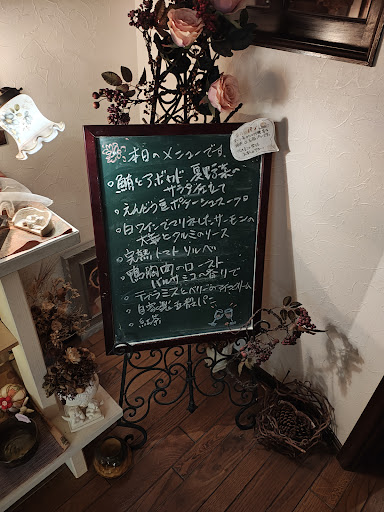 本日のメニューです
・鮪とアボカド 夏野菜の
サラダ仕立て
・えんどう豆ポタージュスープ
・白ワインでマリネしたサーモンの
大葉とクルミのソース
・完熟トマトソルベ
・鴨胸肉のロースト
バルサミコの香りで
・ティラミスとベリーのアイスクリーム
・自家製五穀パン
・紅茶